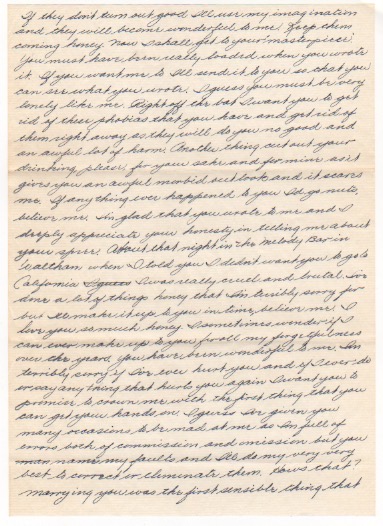 If they don't turn out good I'll use my imagination
and they will become wonderful to me. Keep them
coming honey. Now I shall get to your "masterpiece"
You must have been really loaded when you wrote
it. If you want me to I'll send it to you so that you
can see what you wrote. I guess you must be very
lonely like me. Right off the bat I want you to get
rid of these phobias that you have and get rid of
them right away as they will do you no good and
an awful lot of harm. Another thing cut out your
drinking, please, for your sake and for mine as it
gives you an awful morbid outlook and it scares
me. If anything ever happened to you I'd go nuts,
believe me. I'm glad that you wrote to me and I
deeply appreciate your honesty in telling me about
your spree. About that night in the Melody Bar in
Waltham when I told you I didn't want you to go to
California I was really cruel and brutal. I've
done a lot of things honey that I'm terribly sorry for
but I'll make it up to you in time, believe me. I
love you so much honey. I sometimes wonder if I
can ever make up to you for all my forgetfulness
over the years. You have been wonderful to me. I'm
terribly sorry if I've ever hurt you and if I ever do
or say any thing that hurts you again I want you to
promise to crown me with the first thing that you
can get your hands on. I guess I've given you
many occasions to be mad at me as I'm full of
errors both of commission and omission but you
name my faults and I'll do my very very
best to correct or eliminate them. Hows that?
Marrying you was the first sensible thing that